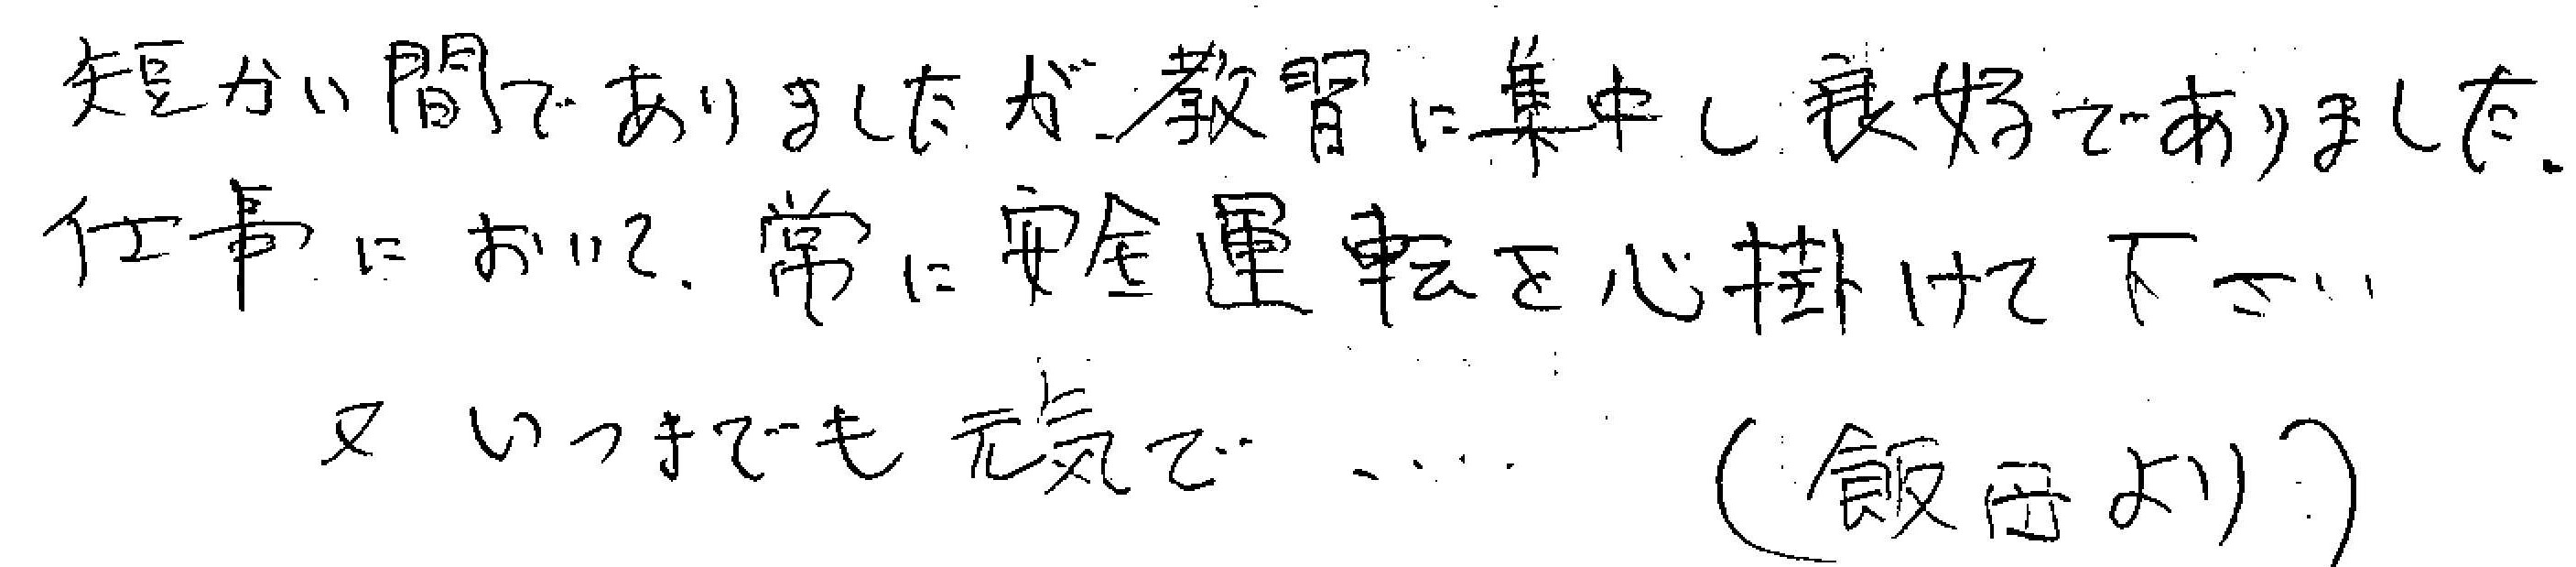 短かい間でありましたが、教習に集中し良好でありました.
仕事において、常に安全運転を心掛けて下さい
又いつまでも元気で ‥‥ (飯田より)